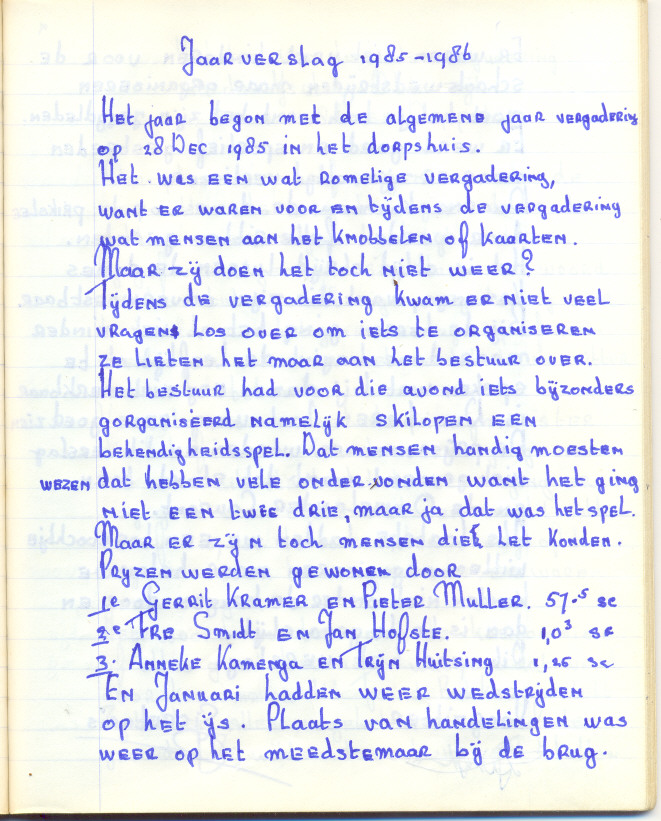 Jaarverslag 1985-1986
Het jaar begon met de algemene jaar vergadering
op 28 Dec 1985 in het dorpshuis.
Het was een wat romelige vergadering,
want er waren voor en tijdens de vergadering
wat mensen aan het knobbelen of kaarten.
Maar zij doen het toch niet weer?
Tijdens de vergadering kwam er niet veel
vragens los over om iets te organiseren
ze lieten het maar aan het bestuur over.
Het bestuur had voor die avond iets bijzonders
gorganiseerd namelijk skilopen een
behendigheidsspel. Dat mensen handig moesten
wezen dat hebben vele ondervonden want het ging
niet een twee drie, maar ja dat was het spel.
Maar er zijn toch mensen die het konden.
Pryzen werden gewonen door
1e Gerrit Kramer en Pieter Muller. 57.5 se
2e Fre Smidt en Jan Hofste. 1,03 se
3. Anneke Kamenga en Trijn Huitsing 1,25 se
En Januari hadden weer wedstrijden
op het ijs. Plaats van handelingen was
weer op het meedstemaar bij de brug.